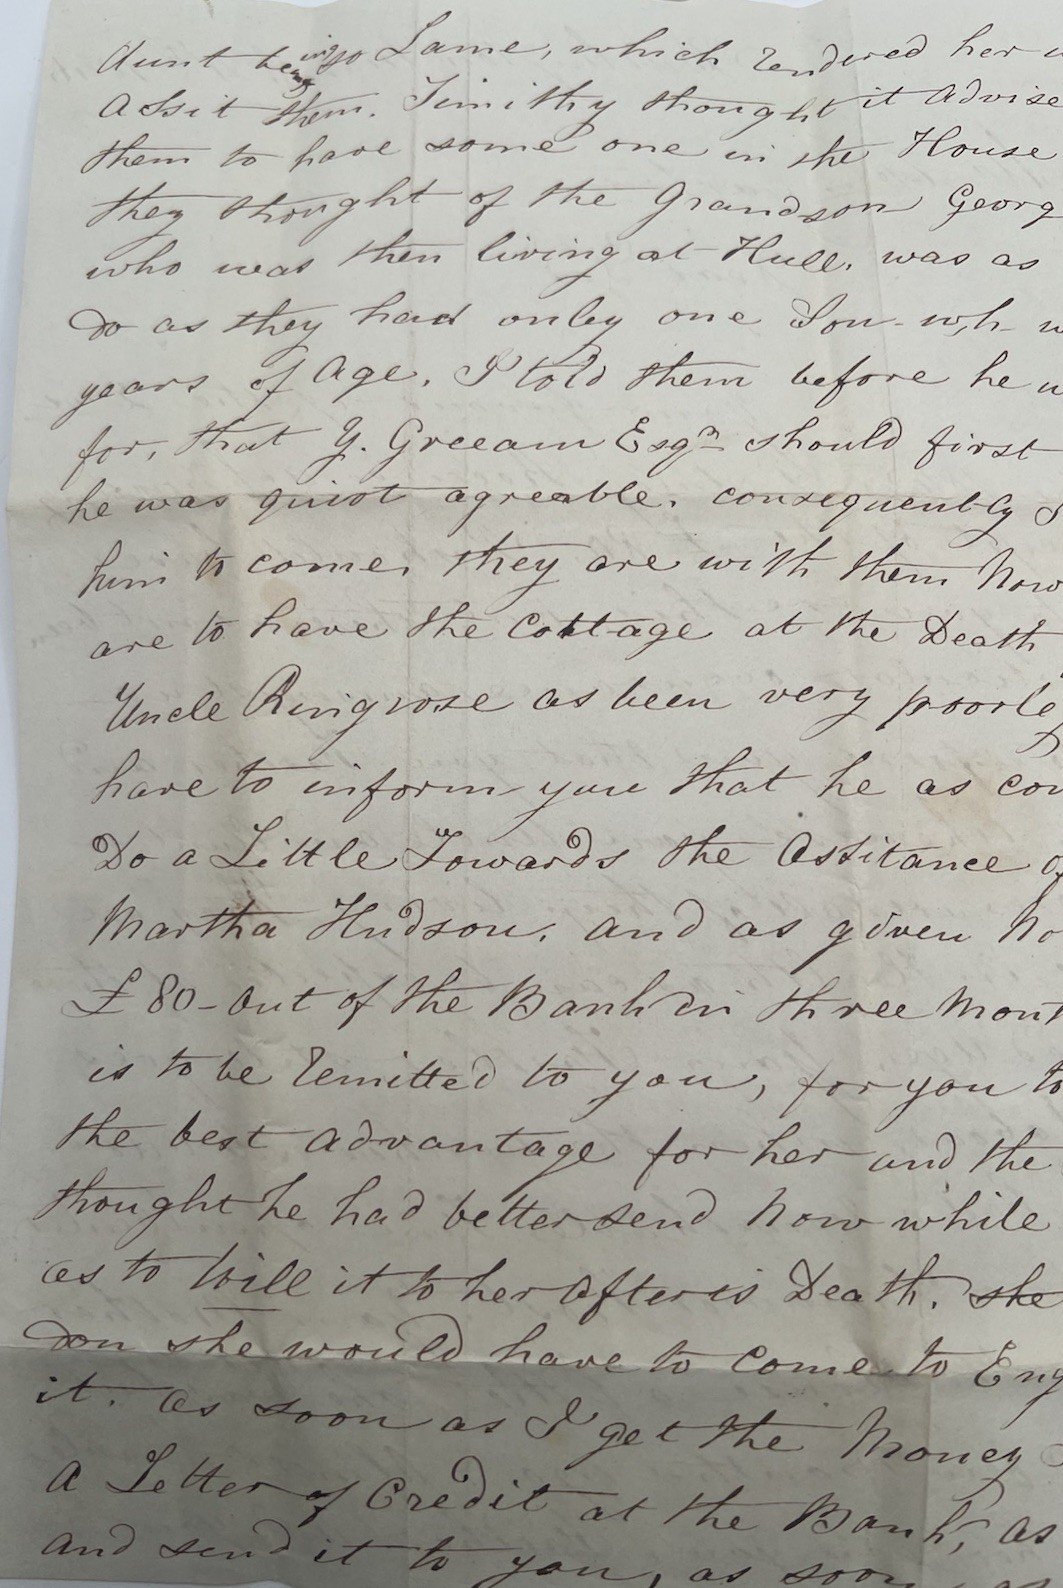 Aunt being so Lame, which rendered her
Assit them. Timithy thought it advise
them to have some one in the House
they thought of the Grandson Georg
who was then living at Hull, was as
do as they had only one Son wh
years of Age. I told them before he
for, that Y. Greeam Esqr should first
he was quiot agreable. consequently
him to come, they are with them Now
are to have the Cottage at the Death
Uncle Ringrose as been very poorly
have to inform you that he as con
Do a Little Towards the Assitance of
Martha Hudson, and as given No
£80 - out of the Bank in three Mont
is to be remitted to you, for you to
the best advantage for her and the
thought he had better send Now while
as to Will it to her after is Death. she
don she would have to come to Eng
it. as soon as I get the Money
A Letter of Credit at the Bank, as
and send it to you, as soon as